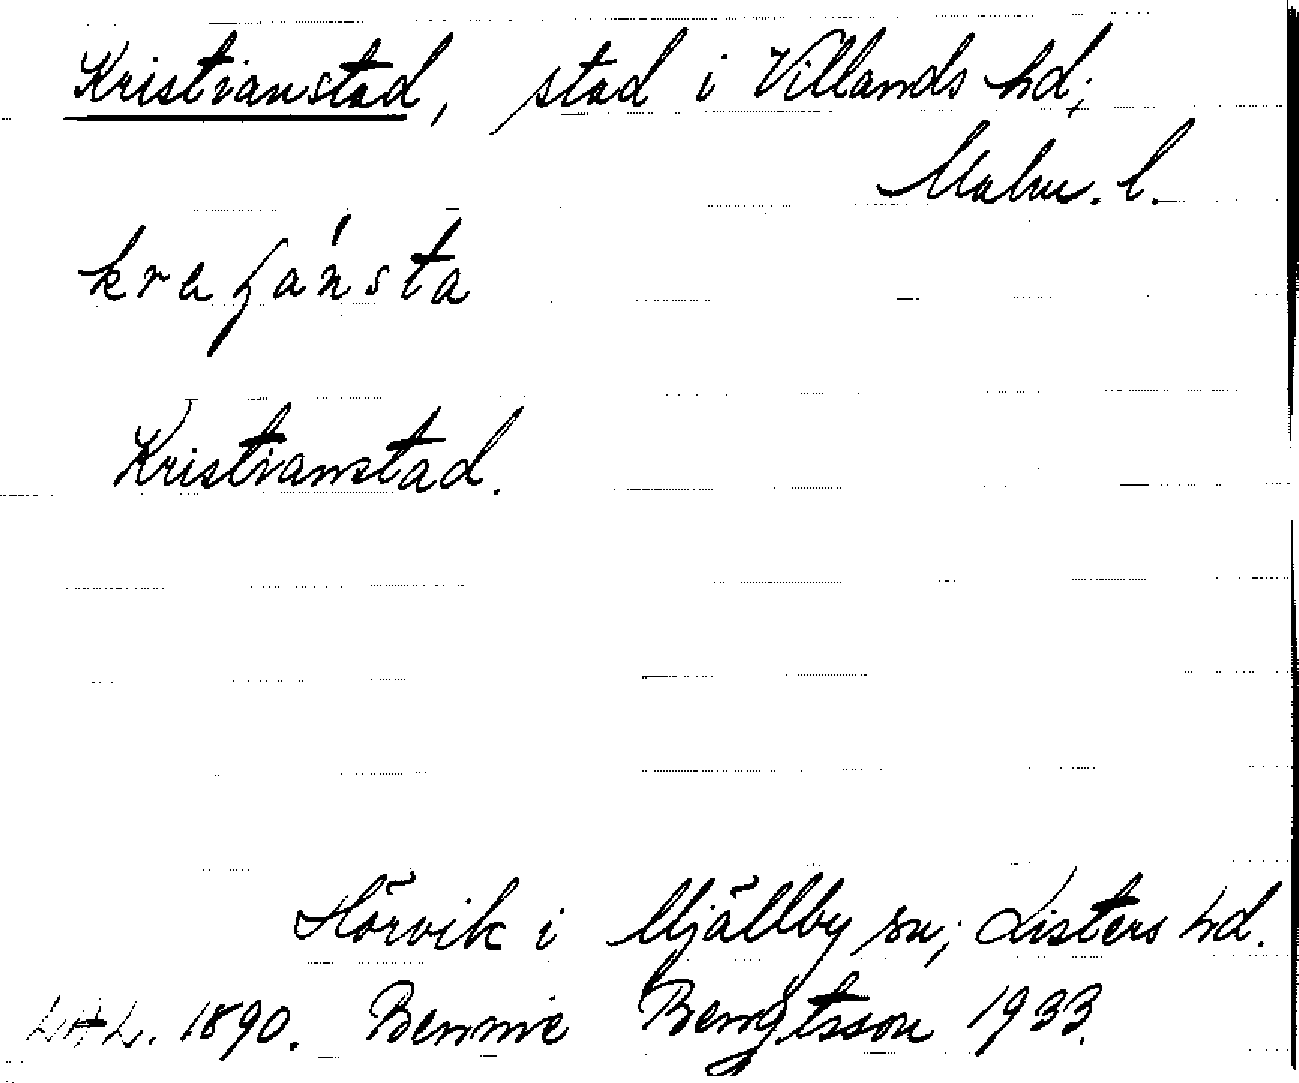 Kristianstad, stad i Villands hd;
Malm. l.
kraʃánsta
Kristianstad.
Hörvik i Mjällby sn; Listers hd.
1890. Bennie Bengtsson 1933.